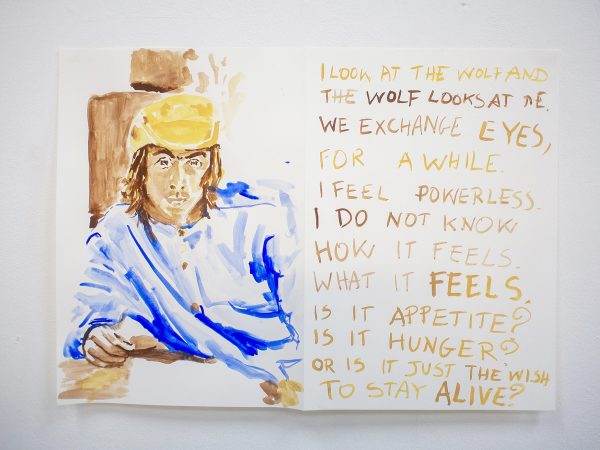 I LOOK AT THE WOLF AND
THE WOLF LOOKS AT ME.
WE EXCHANGE EYES,
FOR A WHILE.
I FEEL POWERLESS.
I DO NOT KNOW
HOW IT FEELS.
WHAT IT FEELS,
IS IT APPETITE?
IS IT HUNGER?
OR IS IT JUST THE WISH
TO STAY ALIVE?